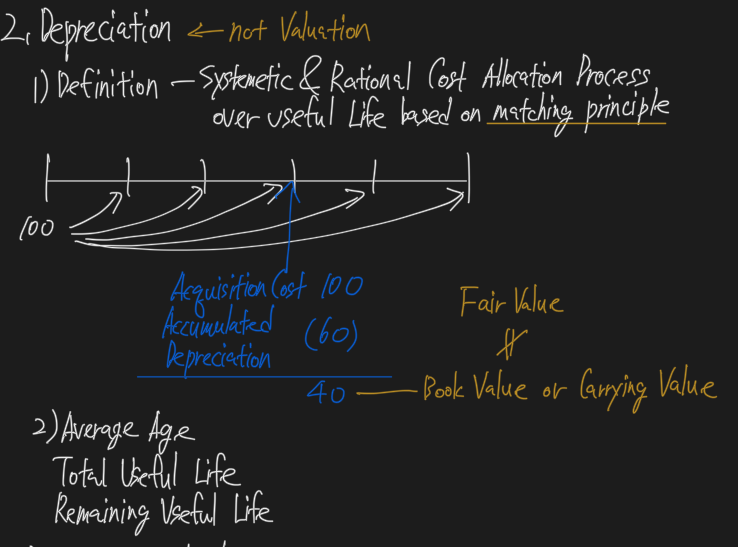 2. Depreciation ← not Valuation
1) Definition - Systemetic & Rational Cost Allocation Process
over useful Life based on matching principle
100
Acquisition Cost 100
Accumulated
Depreciation (60)
40
Fair Value
≠
Book Value or Carrying Value
2) Average Age
Total Useful Life
Remaining Useful Life